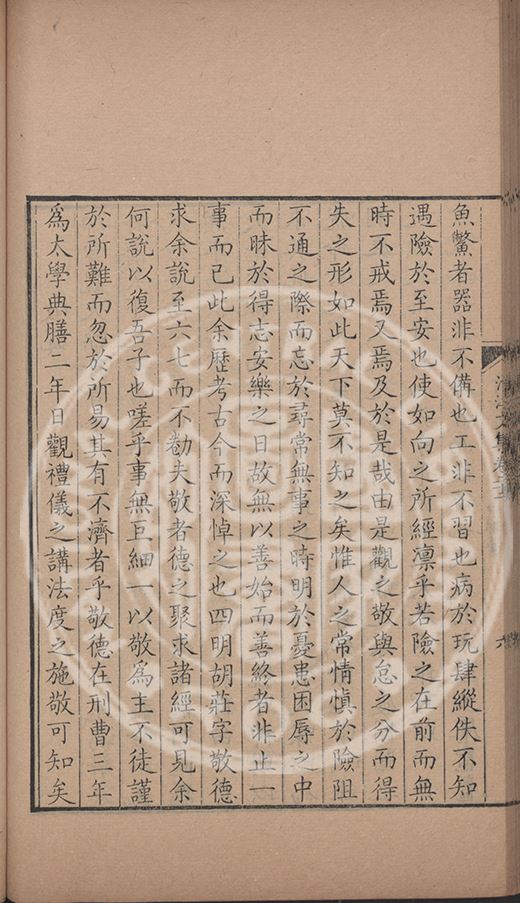 魚鱉者器非不備也工非不習也病於玩肆縱佚不知
遇險於至安也使如向之所經凛乎若險之在前而無
時不戒焉又焉及於是哉由是觀之敬與怠之分而得
失之形如此天下莫不知之矣惟人之常情慎於險阻
不通之際而忘於尋常無事之時明於憂患困辱之中
而昧於得志安樂之日故無以善始而善終者非止一
事而已此余歷考古今而深悼之也四明胡莊字敬德
求余說至六七而不勌夫敬者德之聚求諸經可見余
何說以復吾子也嗟乎事無巨細一以敬爲主不徒謹
於所難而忽於所易其有不濟者乎敬德在刑曹三年
爲太學典膳二年日觀禮儀之講法度之施敬可知矣
六